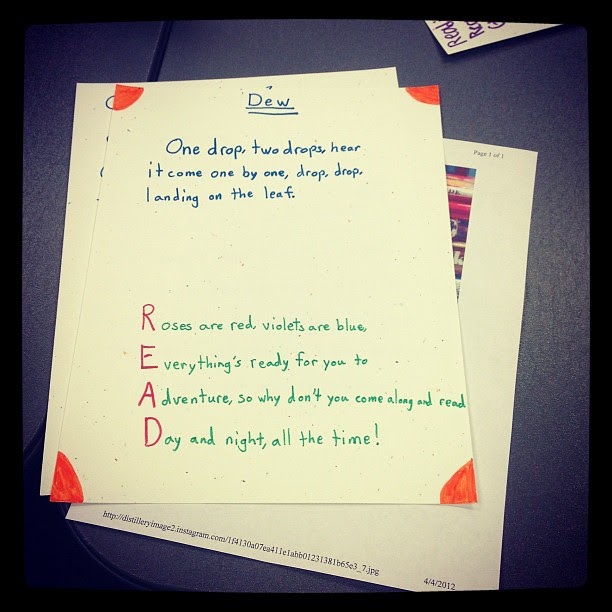 Real
Page 1 of 1
Dew
One drop, two drops, hear
it come one by one, drop, drop,
landing on the leaf.
Roses are red, violets are blue,
Everything's ready for you to
Adventure, so why don't you come along and read
Day and night, all the time!
http://distilleryimage2.instagram.com/1f4130a07ea411e1abb01231381b65e3_7.jpg
4/4/2012